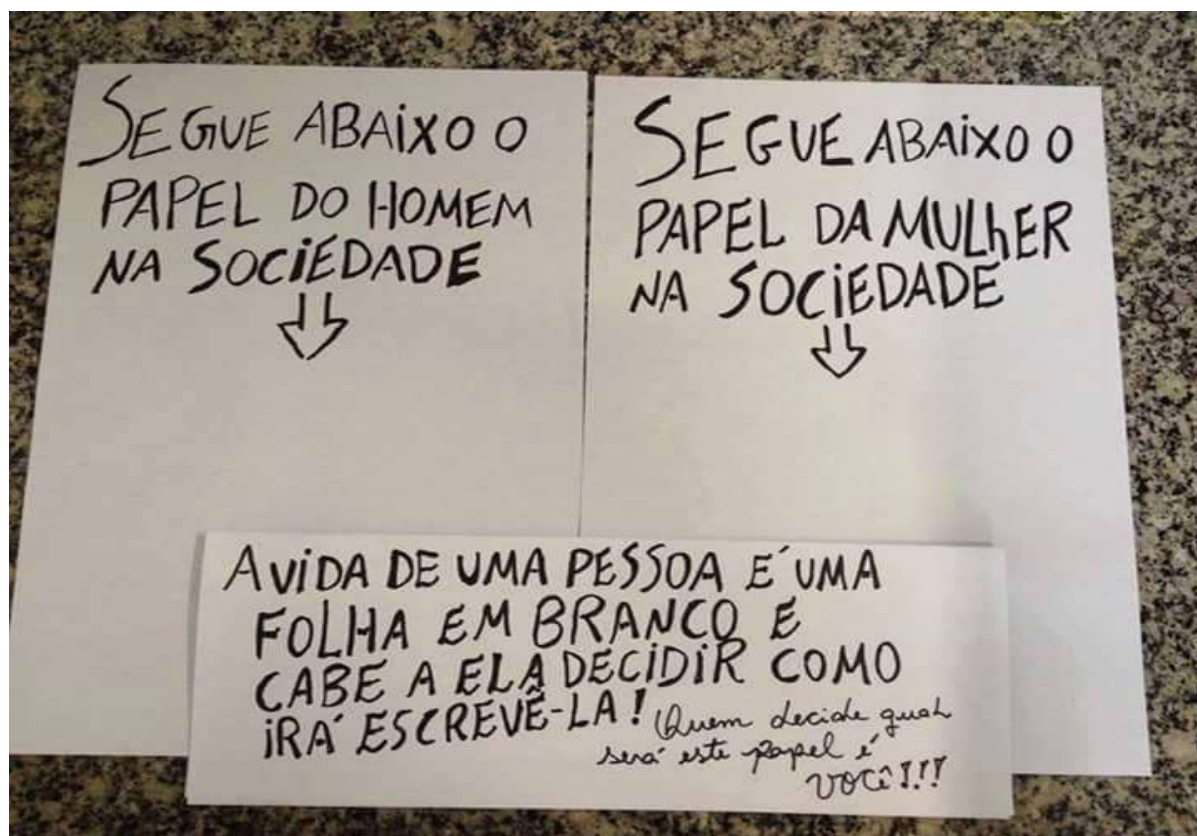 SEGUE ABAIXO O
PAPEL DO HOMEM
NA SOCIEDADE
SEGUE ABAIXO O
PAPEL DA MULhER
NA SOCIEDADE
A VIDA DE UMA PESSOA É UMA
FOLHA EM BRANCO E
CABE A ELA DECIDIR COMO
IRÁ ESCREVÊ-LA!
Quem decide qual
será este papel é
VOCÊ!!!